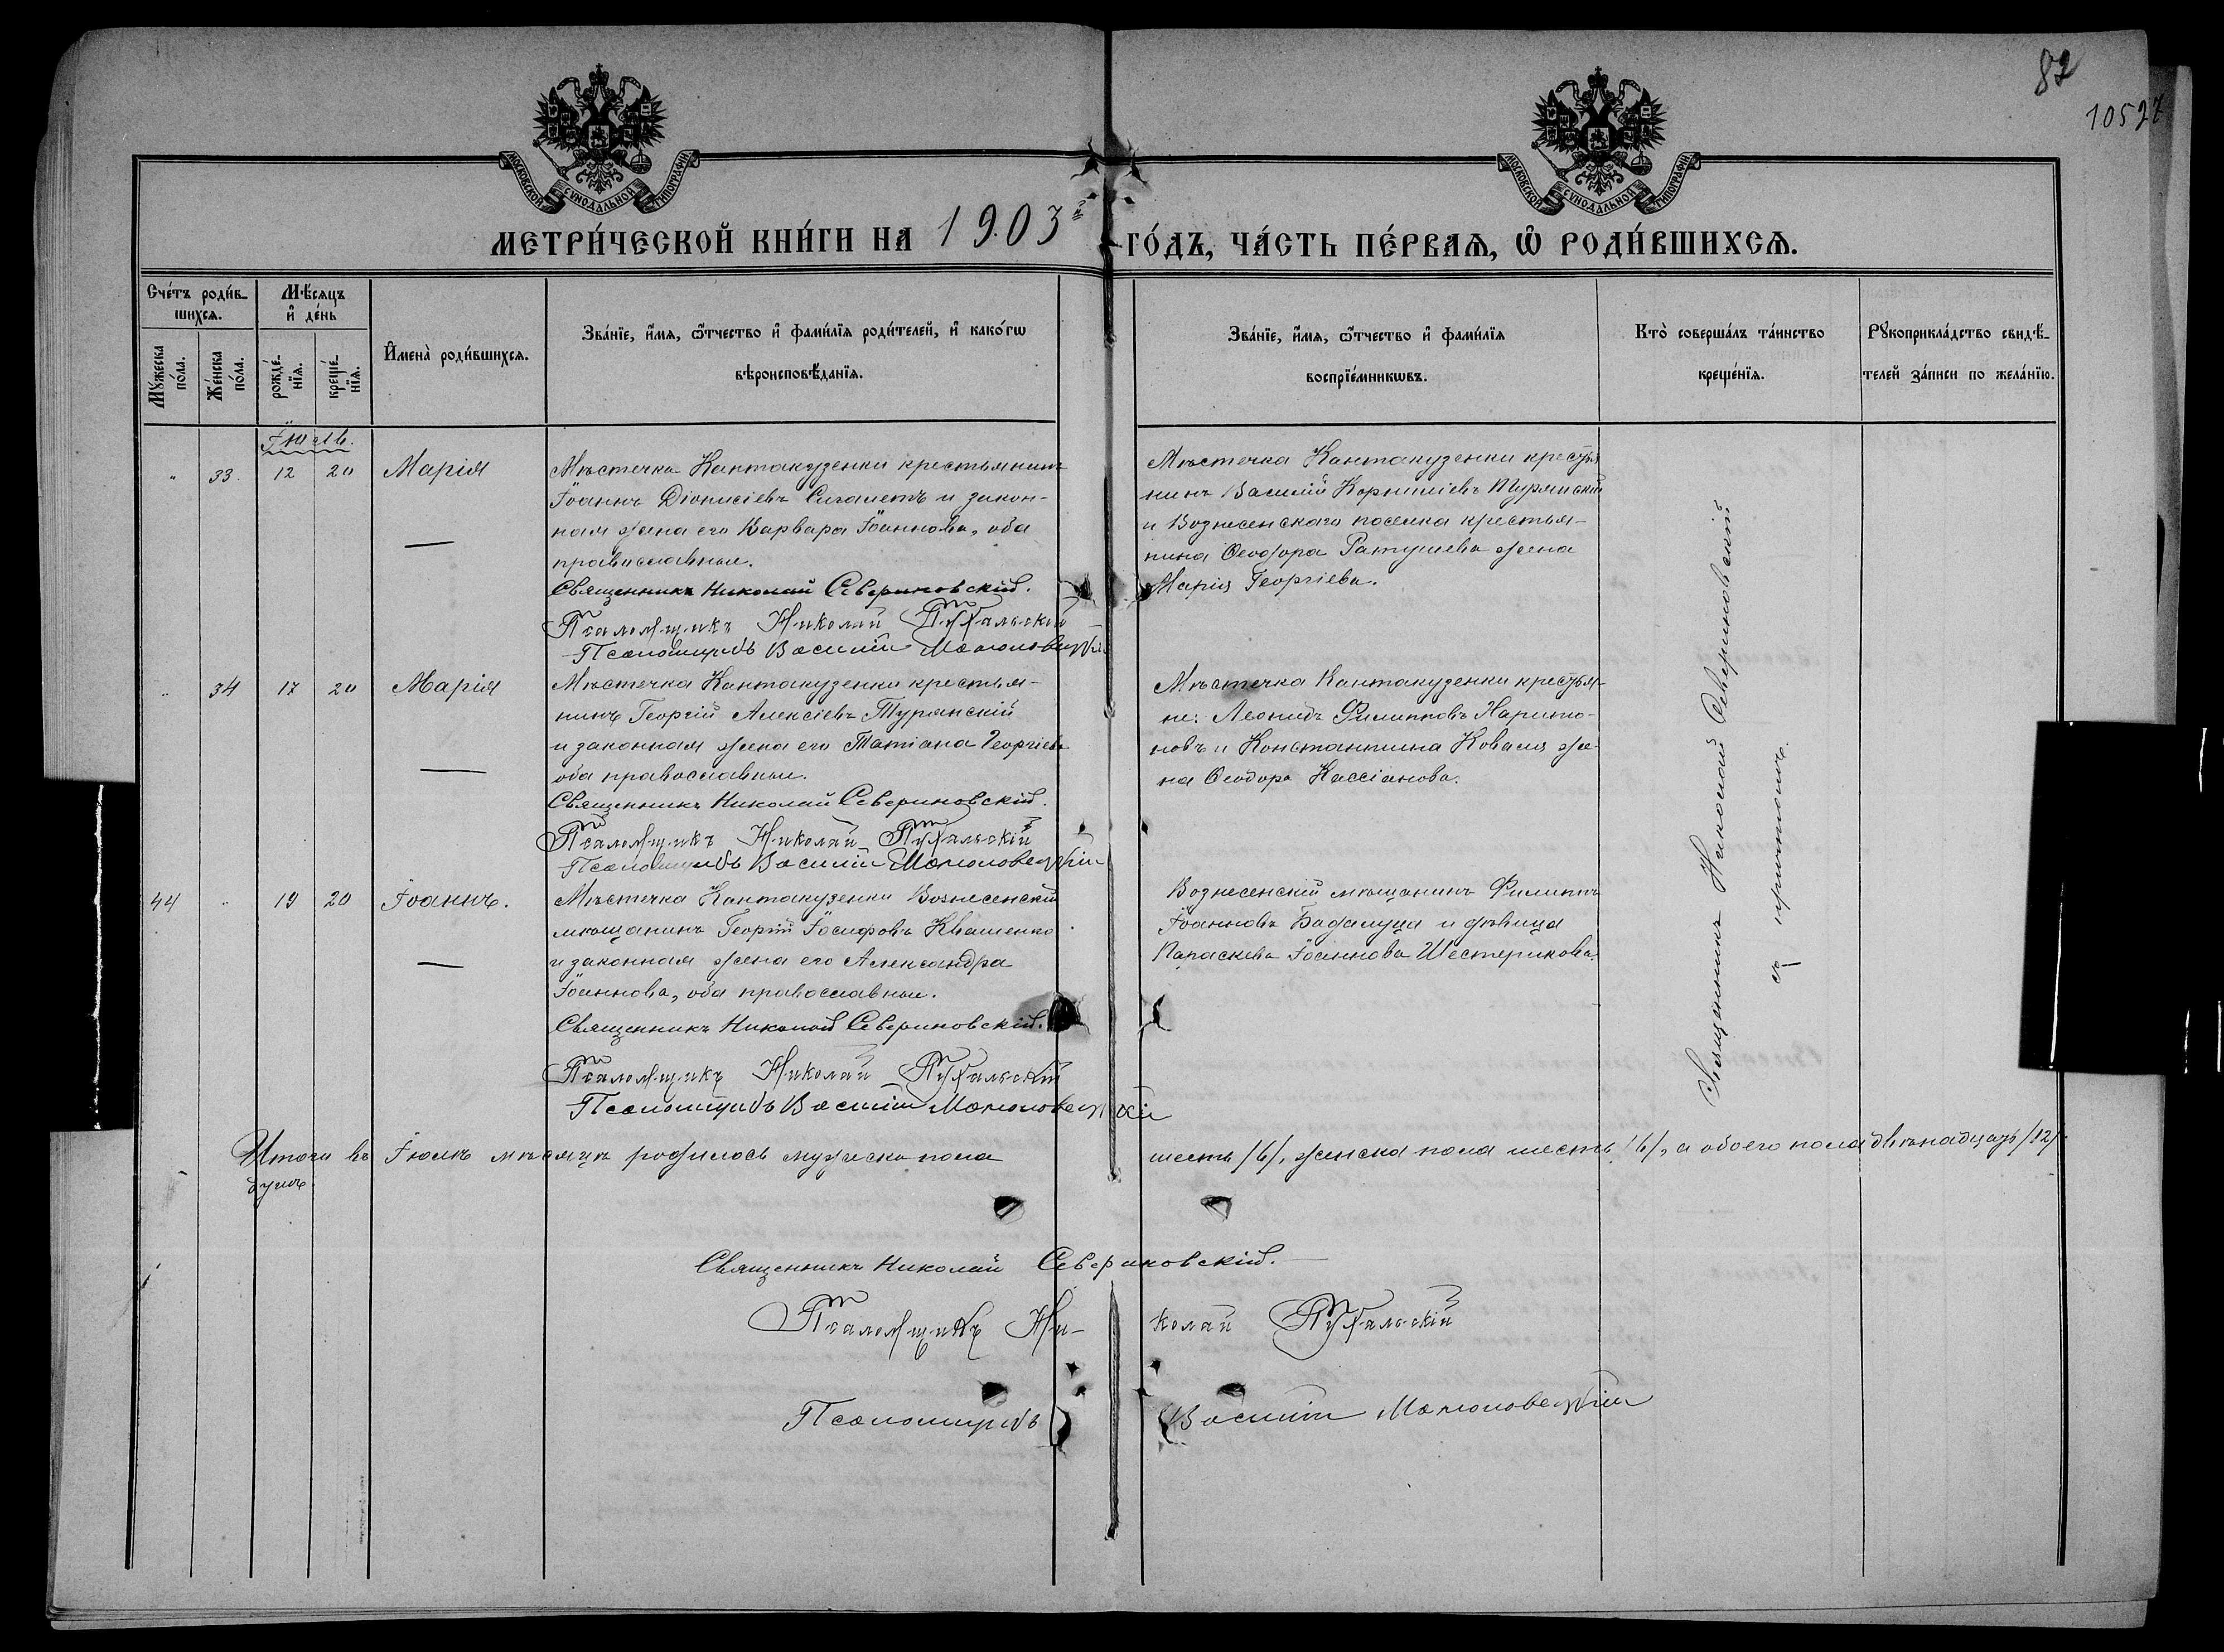 82
10527
МОСКОВСКОЙ СѴНОДАЛЬНОЙ ТИПОГРАФІИ.
МОСКОВСКОЙ СѴНОДАЛЬНОЙ ТИПОГРАФІИ.
МЕТРИ́ЧЕСКОЙ КНИ́ГИ НА 1903 ГО́ДЪ, ЧА́СТЬ ПЕ́РВАЯ, Ѡ҆ РОДИ́ВШИХСЯ.
Сче́тъ роди́в-
шихся.
Мꙋ́жеска
по́ла.
Же́нска
по́ла.
Мѣ́сяцъ
и҆ де́нь
рожде́-
нїя.
креще́-
нїя.
И҆мена̀ роди́вшихся.
Зва́нїе, и҆́мя, ѻ҆́тчество и҆ фами́лїя роди́телей, и҆ како́гѡ
вѣроисповѣ́данїя.
Зва́нїе, и҆́мя, ѻ҆́тчество и҆ фами́лїя
воспрїе́мникѡвъ.
Кто̀ соверша́лъ та́инство
креще́нїя.
Рꙋкоприкла́дство свидѣ́-
телей за́писи по жела́нїю.
Іюль.
" 33. 12 20 Марія
Мѣстечка Кантакузенки крестьянинъ
Іоаннъ Діонисіевъ Сигалетъ и закон-
ная жена его Варвара Іоаннова, оба
православные.
Священникъ Николай Севериновскій.
Псаломщикъ Николай
Псаломщикъ Василій
Мѣстечка Кантакузенки крестья
нинъ Василій Корниліевъ Турянскій
и Вознесенскаго поселка крестья-
нина Ѳеодора Ратушева жена
Марія Георгіева.
" 34 17 20 Марія
Мѣстечка Кантакузенки крестья-
нинъ Георгій Алексіевъ Турянскій
и законная жена его Татіана Георгіева
оба православные.
Священникъ Николай Севериновскій.
Псаломщикъ Николай
Псаломщикъ Василій
Мѣстечка Кантакузенки крестья-
не: Леонидъ Филипповъ Харито-
новъ и Константина Коваля же-
на Ѳеодора Кассіанова.
44 " 19 20 Іоаннъ.
Мѣстечка Кантакузенки Вознесенскій
мѣщанинъ Георгій Іосифовъ Квашенко
и законная жена его Александра
Іоаннова, оба православные.
Священникъ Николай Севериновскій.
Псаломщикъ Николай
Псаломщикъ Василій
Вознесенскій мѣщанинъ Филиппъ
Іоанновъ Бадалуца и дѣвица
Параскева Іоаннова Шестерикова.
Священникъ Николай Севериновскій
съ причтомъ.
Итого въ Іюлѣ мѣсяцѣ родилось мужеска пола шесть /6/, женска пола шесть /6/, а обоего пола двѣнадцать /12/
душъ.
Священникъ Николай Севериновскій.
Псаломщикъ Ни-колай
Псаломщикъ Василій